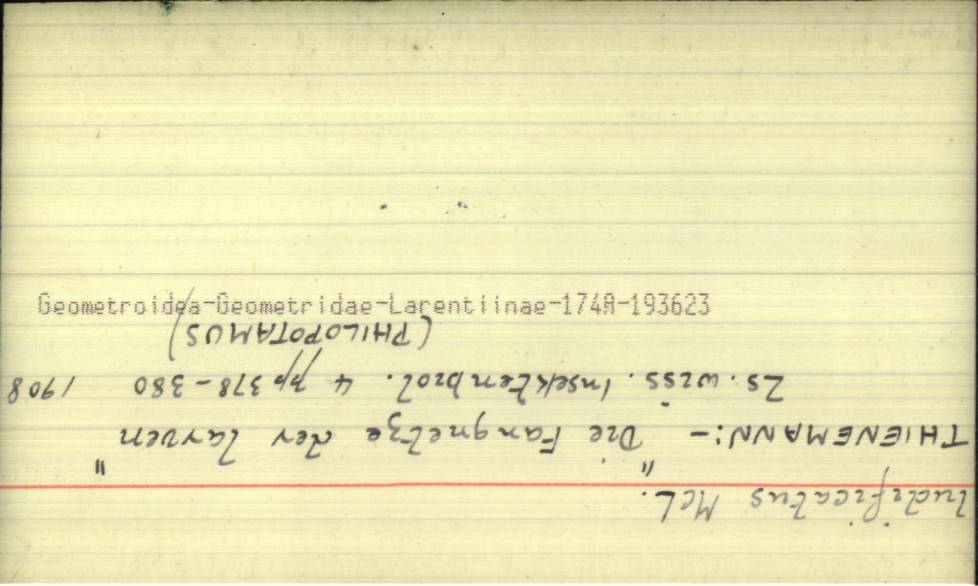 ludificatus McL.
THIENEMANN:- "Die Fangnetze der larven"
Zs. wiss. Insektenbiol. 4 pp 378-380 1908
(PHILOPOTAMUS)
Geometroidea-Geometridae-Larentiinae-174A-193623